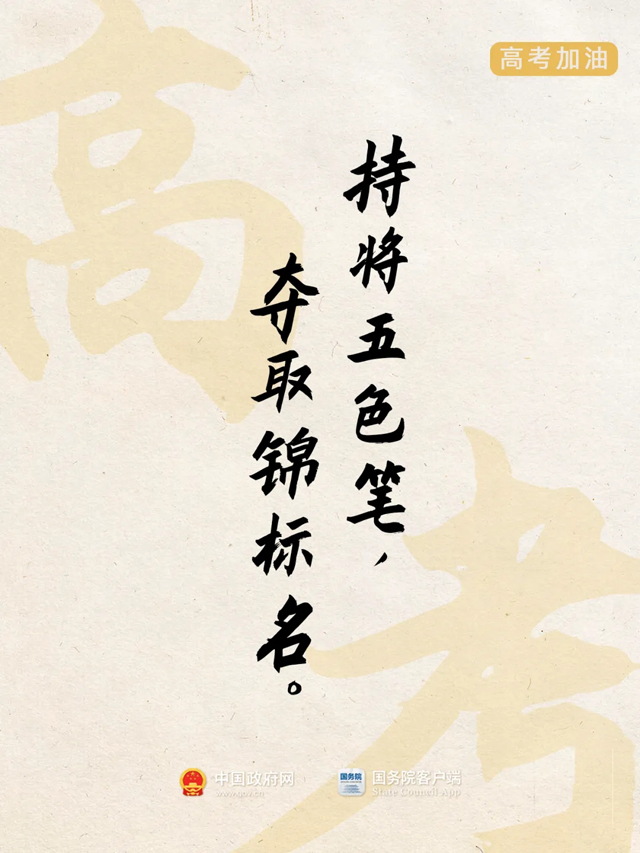 高考加油
高
考
持将五色笔，
夺取锦标名。
中国政府网
www.gov.cn
国务院
国务院客户端
State Council App